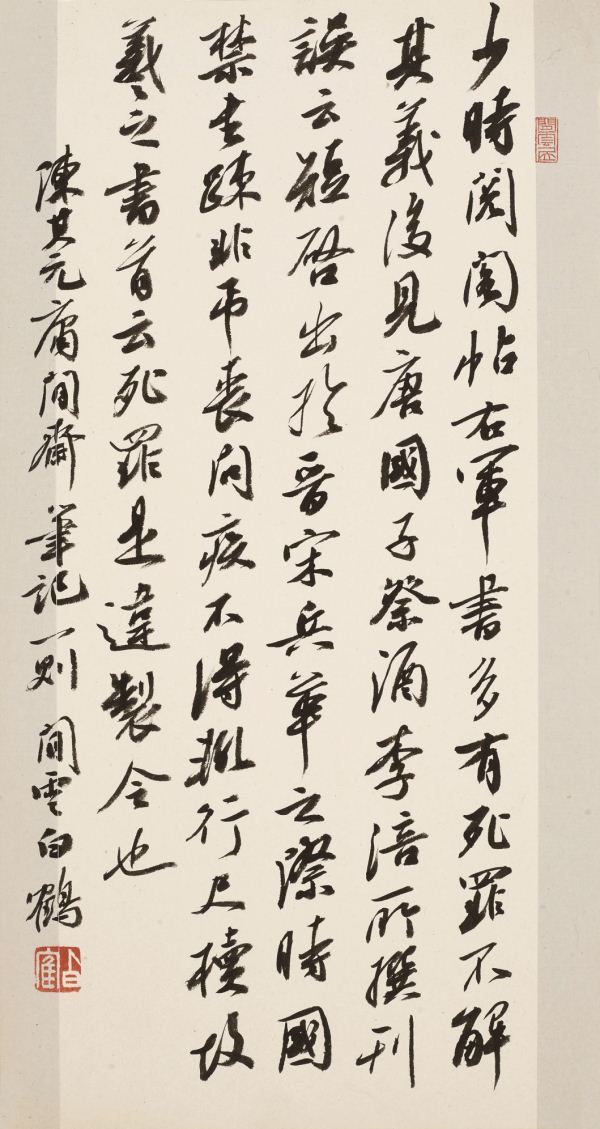 少時閱閣帖右軍書多有死罪不解
其義後見唐國子祭酒李涪所撰刊
誤云短啓出於晉宋兵革之際時國
禁書疏非弔喪問疾不得輒行尺牘故
羲之書首云死罪是違製令也
陳其元庸閒齋筆記一則 閒雲白鶴